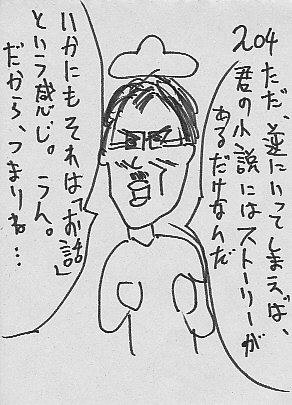 204
ただ、逆にいってしまえば、
君の小説にはストーリーが
あるだけなんだ
いかにもそれは「お話」
という感じ。うん。
だから、つまりね…